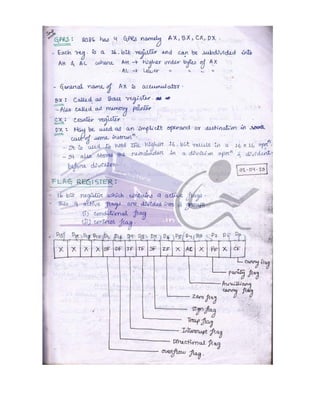 GPRS: 8086 has 4 GPRs namely AX, BX, CX, DX.
- Each reg. is a 16 bit register and can be subdivided into
AH & AL where AH → higher order byte of AX
AL → lower " " " "
- General name of AX is accumulator.
BX: Called as Base register.
- Also called as memory pointer
CX: Counter register
DX: May be used as an implicit operand or destination in
case of some instrucn
- It is used to hold the higher 16 bit result in a 16 x 16 opn.
- It also stores the remainder in a division opn & dividend
before division.
FLAG REGISTER:
16 bit register which contains 9 active flags.
This 9 active flags are divided into 2 groups:
(1) conditional flag
(2) control flag.
X X X X OF DF IF TF SF ZF X AC X PF X CF
carry flag
parity flag
Auxiliary
carry flag
Zero flag
Sign flag
Trap flag
Interrupt flag
Directional flag
overflow flag.